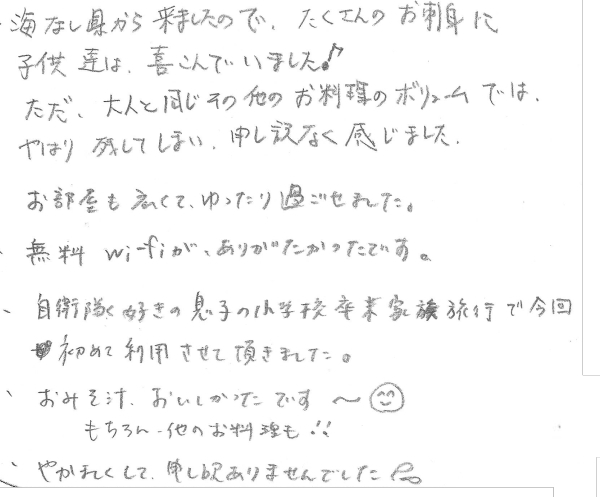 ・海なし県から来ましたので、たくさんのお刺身に
子供達は、喜こんでいました♪
ただ、大人と同じその他のお料理のボリュームでは、
やはり残してしまい、申し訳なく感じました。
お部屋も広くて、ゆったり過ごせました。
、無料 wi-fiが、ありがたかったです。
、自衛隊好きの息子の小学校卒業家族旅行で今回
初めて利用させて頂きました。
、おみそ汁、おいしかったです〜☺
もちろん、他のお料理も!!
、やかましくして、申し訳ありませんでした